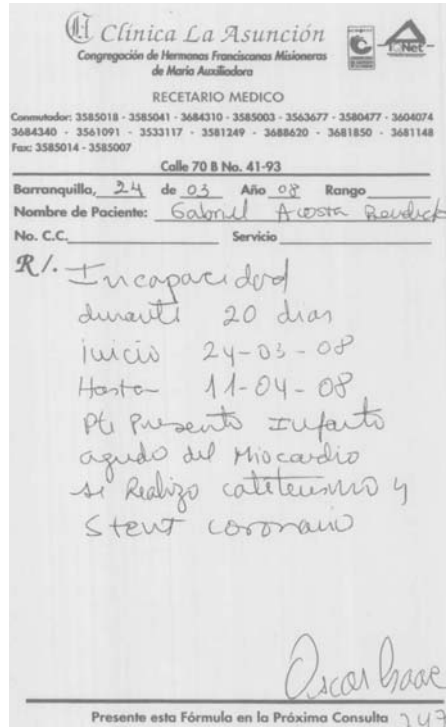 Clínica La Asunción
Congregación de Hermanas Franciscanas Misioneras
de María Auxiliadora
IQNet
RECETARIO MEDICO
Conmutador: 3585018 - 3585041 - 3684310 - 3585003 - 3563677 - 3580477 - 3604074
3684340 - 3561091 - 3533117 - 3581249 - 3688620 - 3681850 - 3681148
Fax: 3585014 - 3585007
Calle 70 B No. 41-93
Barranquilla, 24 de 03 Año 08 Rango
Nombre de Paciente: Gabriel Acosta
No. C.C. Servicio
R/. Incapacidad
durante 20 dias
inicio 24-03-08
Hasta 11-04-08
Pte Presento Infarto
agudo del Miocardio
se Realizo cateterismo y
Stent coronario
Oscar Isaac
Presente esta Fórmula en la Próxima Consulta